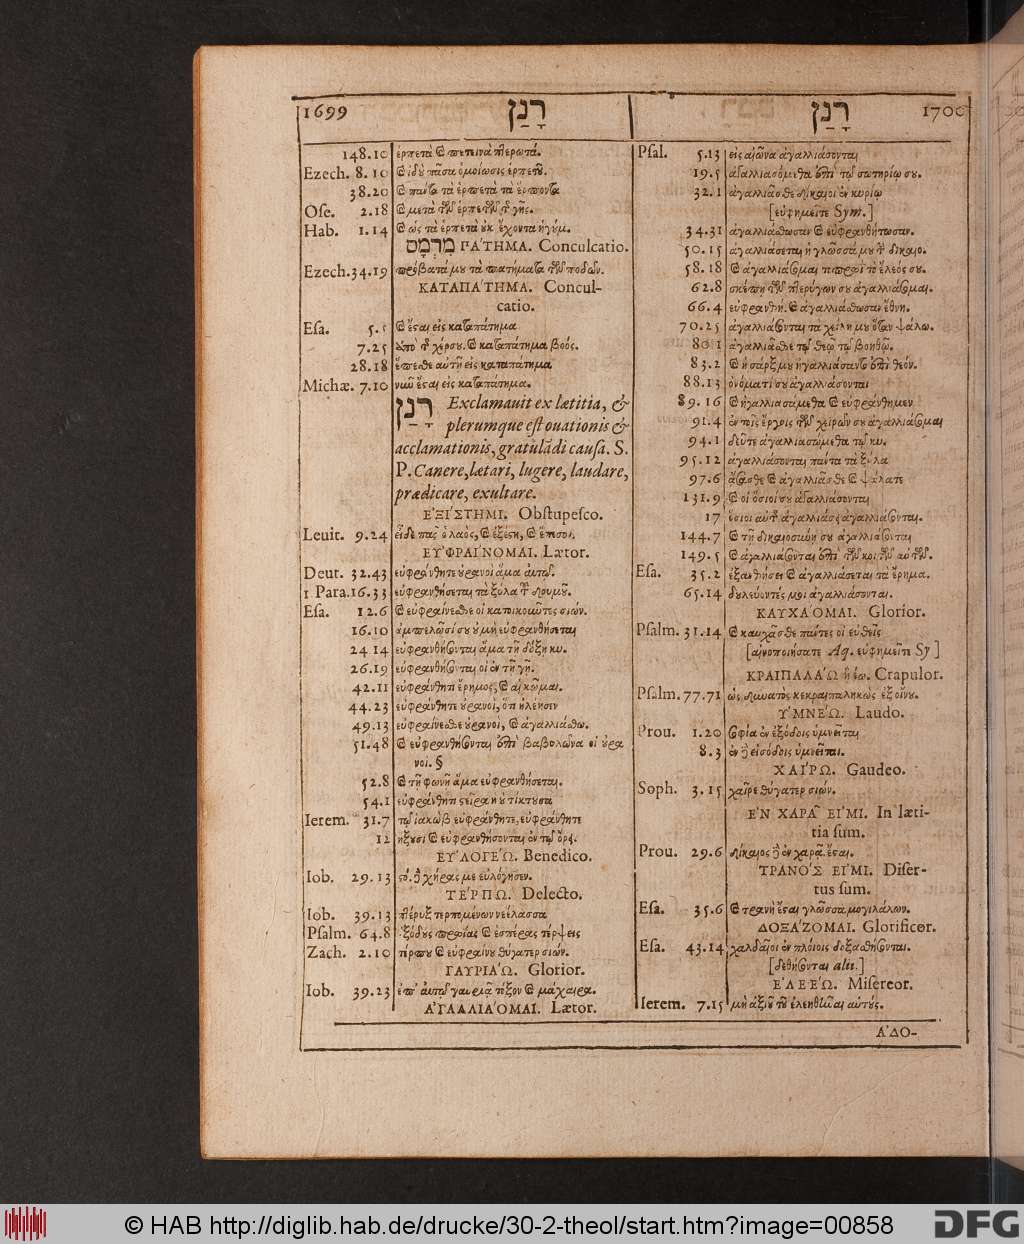 1699 רָנַן
148.10 ἑρπετὰ καὶ πετεινὰ πτερωτά.
Ezech. 8.10 καὶ ἰδοὺ πᾶσα ὁμοίωσις ἑρπετοῦ.
38.20 καὶ πάντα τὰ ἑρπετὰ τὰ ἕρποντα
Ose. 2.18 καὶ μετὰ τῶν ἑρπετῶν τῆς γῆς.
Hab. 1.14 καὶ ὡς τὰ ἑρπετὰ οὐκ ἔχοντα ἡγούμ.
מִרְמָס ΠΑ΄ΤΗΜΑ. Conculcatio.
Ezech. 34.19 πρόβατά μου τὰ πατήματα τῶν ποδῶν.
ΚΑΤΑΠΑ΄ΤΗΜΑ. Concul-
catio.
Esa. 5.5 καὶ ἔσται εἰς καταπάτημα
7.25 ἀπὸ τῆς χέρσου. καὶ καταπάτημα βοός.
28.18 ἔσεσθε αὐτῇ εἰς καταπάτημα
Michæ. 7.10 νῦν ἔσται εἰς καταπάτημα.
רָנַן Exclamauit ex lætitia, &
plerumque est ouationis &
acclamationis, gratulādi causa. S.
P. Canere, lætari, lugere, laudare,
prædicare, exultare.
ἘΞΙ΄ΣΤΗΜΙ. Obstupesco.
Leuit. 9.24 εἶδε πᾶς ὁ λαὸς, καὶ ἐξέστη, καὶ ἔπεσον.
ΕΥ᾿ΦΡΑΙ΄ΝΟΜΑΙ. Lætor.
Deut. 32.43 εὐφράνθητε οὐρανοὶ ἅμα αὐτῷ.
1. Para. 16.33 εὐφρανθήσεται τὰ ξύλα τοῦ δρυμοῦ.
Esa. 12.6 καὶ εὐφραίνεσθε οἱ κατοικοῦντες σιών.
16.10 ἀμπελῶσί σου οὐ μὴ εὐφρανθήσεται
24 14 εὐφρανθήσονται ἅμα τῇ δόξῃ κυ.
26.19 εὐφρανθήσονται οἱ ἐν τῇ γῇ.
42.11 εὐφράνθητι ἔρημος, καὶ αἱ κῶμαι.
44.23 εὐφράνθητε οὐρανοὶ, ὅτι ἠλέησεν
49.13 εὐφραίνεσθε οὐρανοὶ, καὶ ἀγαλλιάσθω.
51.48 καὶ εὐφρανθήσονται ἐπὶ βαβυλῶνα οἱ οὐρα
νοί. §
52.8 καὶ τῇ φωνῇ ἅμα εὐφρανθήσεται.
54.1 εὐφράνθητι στεῖρα ἡ οὐ τίκτουσα
Ierem. 31.7 τῷ ἰακὼβ εὐφράνθητε, εὐφράνθητε
12 ἥξουσι καὶ εὐφρανθήσονται ἐν τῷ ὄρει.
ΕΥ᾿ΛΟΓΕ΄Ω. Benedico.
Iob. 29.13 στό. δὲ χήρας με εὐλόγησεν.
ΤΕ΄ΡΠΩ. Delecto.
Iob. 39.13 πτέρυξ τερπομένων νεέλασσα
Psalm. 64.8 ἐξόδους πρωίας καὶ ἑσπέρας τέρψεις
Zach. 2.10 τέρπου καὶ εὐφραίνου θύγατερ σιών.
ΓΑΥΡΙΑ΄Ω. Glorior.
Iob. 39.23 ἐπ' αὐτῷ γαυριᾷ τόξον καὶ μάχαιρα.
Α᾿ΓΑΛΛΙΑ΄ΟΜΑΙ. Lætor.
רָנַן 1700
Psal. 5.13 εἰς αἰῶνα ἀγαλλιάσονται
19.5 ἀγαλλιασόμεθα ἐπὶ τῷ σωτηρίῳ σου.
32.1 ἀγαλλιᾶσθε δίκαιοι ἐν κυρίῳ
[εὐφημεῖτε Sym.]
34.31 ἀγαλλιάσθωσαν καὶ εὐφρανθήτωσαν.
50.15 ἀγαλλιάσεται ἡ γλῶσσά μου τὴν δικαιο.
58.18 καὶ ἀγαλλιάσομαι τὸ πρωὶ τὸ ἔλεός σου.
62.8 σκέπῃ τῶν πτερύγων σου ἀγαλλιάσομαι.
66.4 εὐφρανθή. καὶ ἀγαλλιάσθωσαν ἔθνη.
70.25 ἀγαλλιάσονται τὰ χείλη μου ὅταν ψάλω.
80 1 ἀγαλλιᾶσθε τῷ θεῷ τῷ βοηθῷ.
83.2 καὶ ἡ σάρξ μου ἠγαλλιάσαντο ἐπὶ θεόν.
88.13 ὀνόματί σου ἀγαλλιάσονται
89.16 καὶ ἠγαλλιασάμεθα καὶ εὐφράνθημεν
91.4 ἐν τοῖς ἔργοις τῶν χειρῶν σου ἀγαλλιάσομαι
94.1 δεῦτε ἀγαλλιασώμεθα τῷ κυ.
95.12 ἀγαλλιάσονται πάντα τὰ ξύλα
97.6 ᾄσασθε καὶ ἀγαλλιᾶσθε καὶ ψάλατε
131.9 καὶ οἱ ὅσιοί σου ἀγαλλιάσονται
17 ὅσιοι αὐτῆς ἀγαλλιάσει ἀγαλλιάσονται.
144.7 καὶ τῇ δικαιοσύνῃ σου ἀγαλλιάσονται
149.5 καὶ ἀγαλλιάσονται ἐπὶ τῶν κοιτῶν αὐτῶν.
Esa. 35.2 ἐξανθήσει καὶ ἀγαλλιάσεται τὰ ἔρημα.
65.14 δουλεύοντές μοι ἀγαλλιάσονται.
ΚΑΥΧΑ΄ΟΜΑΙ. Glorior.
Psalm. 31.14 καὶ καυχᾶσθε πάντες οἱ εὐθεῖς
[αἰνοποιήσατε Aq. εὐφημεῖτε Sy]
ΚΡΑΙΠΑΛΑ΄Ω ἢ έω. Crapulor.
Psalm. 77.71 ὡς δυνατὸς κεκραιπαληκὼς ἐξ οἴνου.
Υ῾ΜΝΕ΄Ω. Laudo.
Prou. 1.20 σοφία ἐν ἐξόδοις ὑμνεῖται
8.3 ἐν δὲ εἰσόδοις ὑμνεῖται.
ΧΑΙ΄ΡΩ. Gaudeo.
Soph. 3.15 χαῖρε θύγατερ σιών.
Ε᾿Ν ΧΑΡΑ͂ ΕΙ᾿ΜΙ. In læti-
tia sum.
Prou. 29.6 δίκαιος δὲ ἐν χαρᾷ ἔσται.
ΤΡΑΝΟ΄Σ ΕΙ᾿ΜΙ. Diser-
tus sum.
Esa. 35.6 καὶ τρανὴ ἔσται γλῶσσα μογιλάλων.
ΔΟΞΑ΄ΖΟΜΑΙ. Glorificor.
Esa. 43.14 χαλδαῖοι ἐν πλοίοις δοξασθήσονται.
[δεθήσονται alii.]
Ε᾿ΛΕΕ΄Ω. Misereor.
Ierem. 7.15 μὴ ἀξιοῦ τοῦ ἐλεηθῆναι αὐτούς.
Α᾿ΔΟ-
© HAB http://diglib.hab.de/drucke/30-2-theol/start.htm?image=00858
DFG